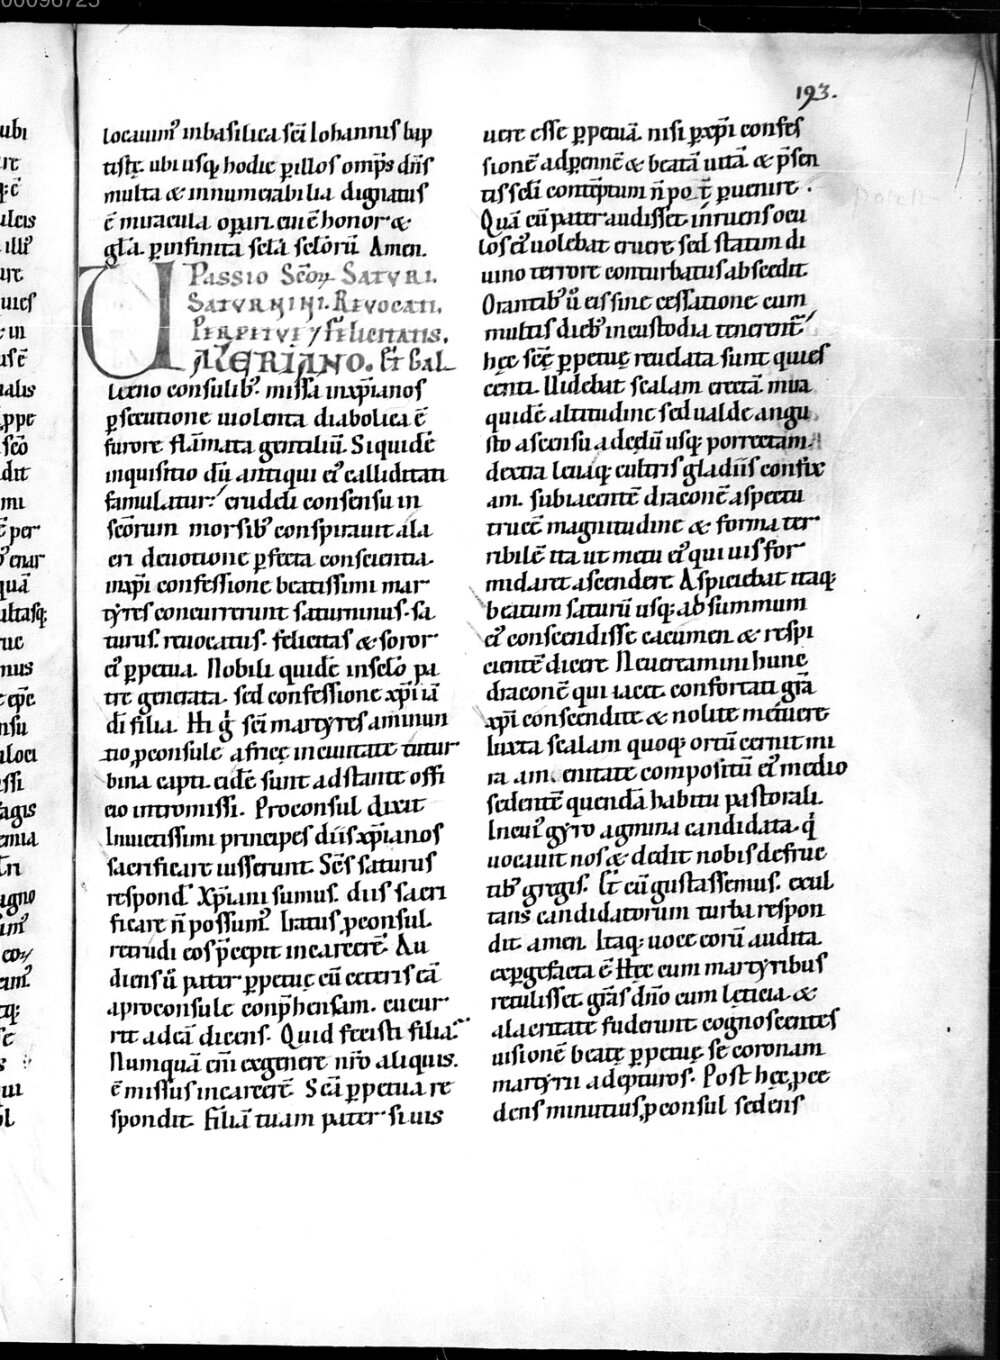 193.
locauimꝰ inbasilica sc̄i Iohannis bap
tistę. ubi usq; hodie ꝑillos omp̄s dn̄s
multa & innumerabilia dignatus
ē miracula oꝑari. cui ē honor &
gl̄a. ꝑinfinita scl̄a scl̄orū Amen.
PASSIO SC̄OR̄ SATVRI.
SATVRNINI. REVOCATI.
PERPETVE / FELICITATIS.
VALERIANO. Et Gal
lieno consulibꝰ. missa inxp̄ianos
ꝑsecutione uiolenta diabolica ē
furore flāmata gentiliū. Siquidē
inquisitio dū antiqui eiꝰ calliditati
famulatur. crudeli consensu in
sc̄orum morsibꝰ conspirauit ala
cri deuotione ꝑfecta conscientia.
inxp̄i confessione beatissimi mar
tyres concurrerunt saturninus. sa
turus. reuocatus. felicitas & soror
eiꝰ ꝑpetua. Nobili quidē insclō pa
tre generata. sed confessione xp̄i iā
dī filia. Hi g̊ sc̄i martyres aminun
tio ꝓconsule africę inciuitate titur
bina capti. eidē sunt adstante offi
cio intromissi. Proconsul dixit
Inuictissimi principes diis xp̄ianos
sacrificare iusserunt. Sc̄s saturus
respond̄. Xp̄iani sumus. diis sacri
ficare n̄ possumꝰ. Iratus ꝓconsul.
retrudi eos p̄cepit incarcerē. Au
diens ū pater ꝑpetuę cū ceteris eā
aproconsule conp̄hensam. cucur
rit adeā dicens. Quid fecisti filia.
Numquā eni exgenere nr̄o aliquis.
ē missus incarcerē. Sc̄a ꝑpetua re
spondit. Filiā tuam pater si uis
uere esse ꝑpetuā. nisi ꝑxp̄i confes
sionē adꝑennē & beatā uitā & p̄sen
tis scl̄i contēptum n̄ po. t̄ ꝑuenire.
Quā cū pater audisset. inruens ocu
los eiꝰ uolebat eruere sed statim di
uino terrore conturbatus abscedit.
Orantibꝰ ū eis sine cessatione cum
multis diebꝰ incustodia tenerent̄
hęc sc̄ę ꝑpetuę reuelata sunt quies
centi. Uidebat scalam erectā mira
quidē altitudine sed ualde angu
sto ascensu adcęlū usq; porrectam.
dextra leuaq; cultris gladiis confix
am. subiacentē draconē aspectu
trucē magnitudine & forma ter
ribilē ita ut metu eiꝰ quiuis for
midaret ascendere. Aspiciebat itaq;
beatum saturū usq; ab summum
eiꝰ conscendisse cacumen & respi
cientē dicere. Neuereamini hunc
draconē qui iacet. confortati gr̄a
xp̄i conscendite & nolite metuere
Iuxta scalam quoq; ortū cernit mi
ra amenitate compositū eiꝰ medio
sedentē quendā habitu pastorali.
In cuiꝰ gyro agmina candidata. q̇
uocauit nos & dedit nobis defruc
tibꝰ gregis. Et cū gustassemus. exul
tans candidatorum turba respon
dit amen. Itaq; uoce eorū audita.
expergefacta ē. Hęc cum martyribus
retulisset. grās dn̄o cum lęticia &
alacritate fuderunt. cognoscentes
uisionē beatę ꝑpetuę se coronam
martyrii adepturos. Post hęc ꝓce
dens minutius ꝓconsul sedens